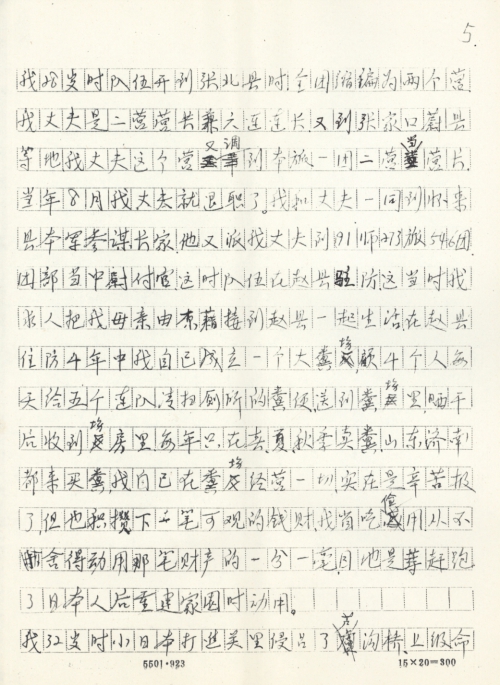 5.
我28岁时队伍开到张北县时全团缩编为两个营
我丈夫是二营营长兼六连连长又到张家口蔚县
等地我丈夫这个营又调到本旅一团二营当营长.
当年8月我丈夫就退职了。我和丈夫一同到怀来
县本军参谋长家.他又派我丈夫到91师273旅546团
团部当中尉付官这时队伍在赵县驻防这当时我
求人把我母亲由原籍接到赵县一起生活在赵县
住防4年中我自己成立一个大粪场,顾4个人每
天给五个连队清扫厕所的粪便.送到粪场里.晒干
后收到场房里每年只在春.夏.秋季卖粪,山东济南
都来买粪,我自己在粪场经营一切,实在是辛苦极
了.但也积攒下一笔可观的钱财.我省吃俭用从不
舍得动用那笔财产的一分一毫.目地是等赶跑
了日本人后重建家园时动用。
我32岁时小日本打进关里侵占了芦沟桥上级命
5501·923
15×20=300